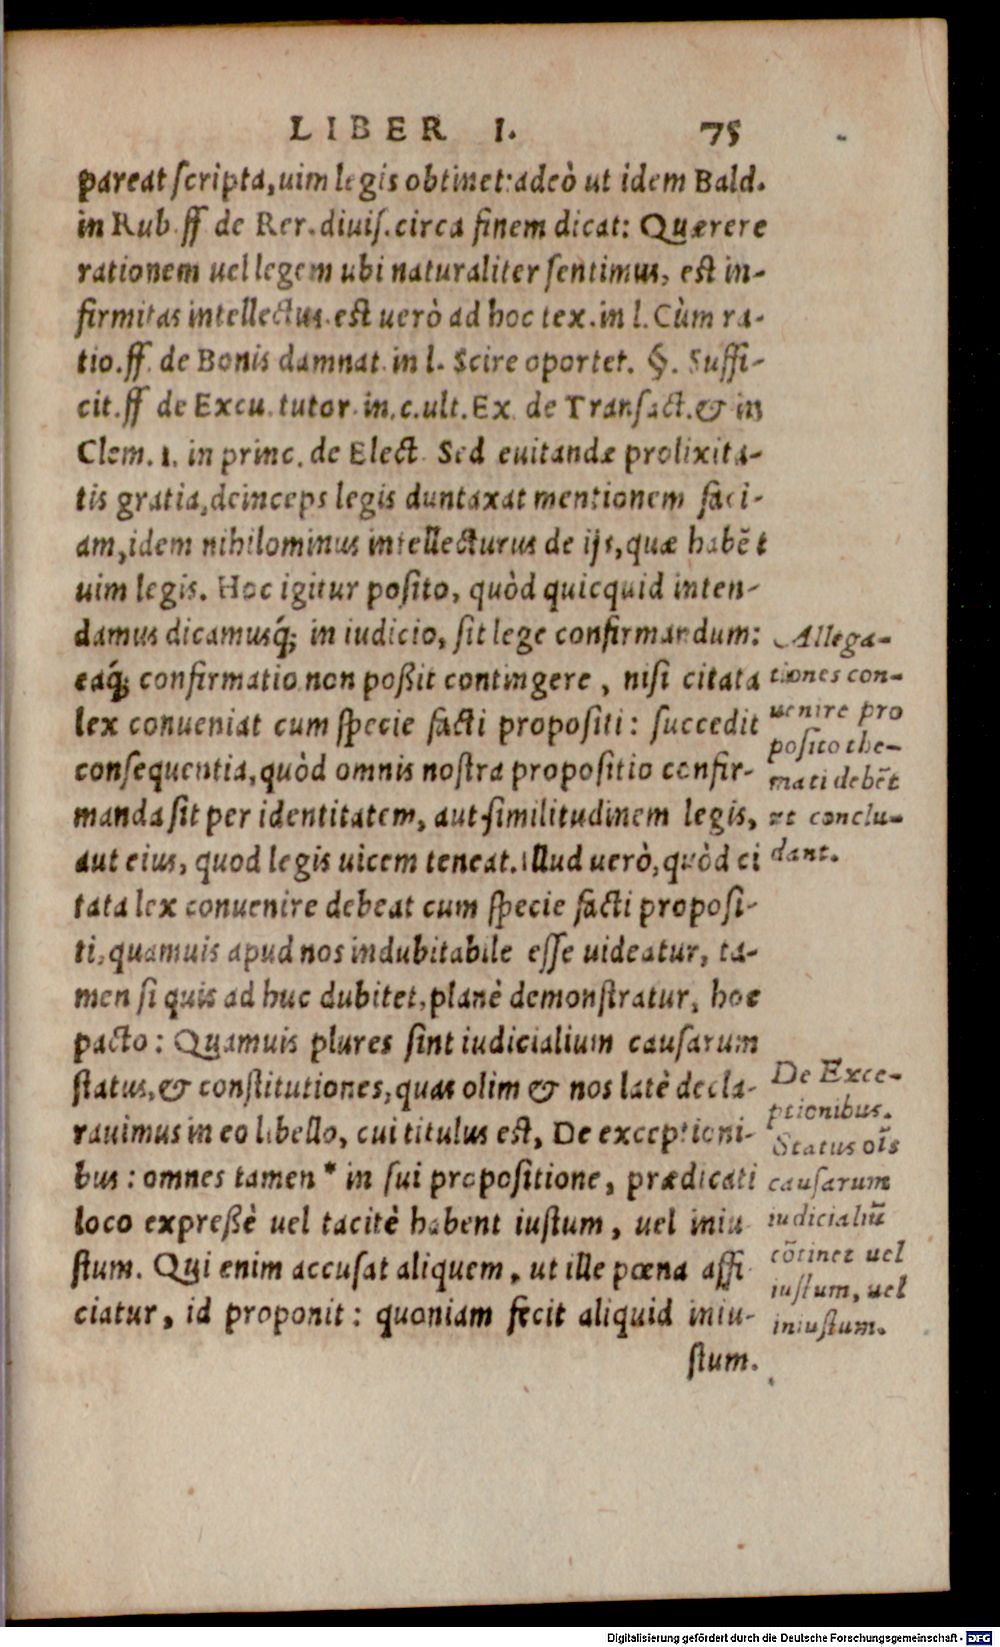 LIBER I. 75
pareat ſcripta, uim legis obtinet: adeò ut idem Bald.
in Rub. ff de Rer. diuiſ. circa finem dicat: Quærere
rationem uel legem ubi naturaliter ſentimus, eſt in-
firmitas intellectus. eſt uerò ad hoc tex. in l. Cùm ra-
tio. ff. de Bonis damnat. in l. Scire oportet. §. Suffi-
cit. ff de Excu. tutor. in. c. ult. Ex. de Tranſact. & in
Clem. 1. in princ. de Elect. Sed euitandæ prolixita-
tis gratia, deinceps legis duntaxat mentionem faci-
am, idem nihilominus intellecturus de ijs, quæ habēt
uim legis. Hoc igitur poſito, quòd quicquid inten-
damus dicamusq́; in iudicio, ſit lege confirmandum:
eaq́; confirmatio non poßit contingere, niſi citata
lex conueniat cum ſpecie facti propoſiti: ſuccedit
conſequentia, quòd omnis noſtra propoſitio confir-
manda ſit per identitatem, aut ſimilitudinem legis,
aut eius, quod legis uicem teneat. Illud uerò, quòd ci
tata lex conuenire debeat cum ſpecie facti propoſi-
ti, quamuis apud nos indubitabile eſſe uideatur, ta-
men ſi quis ad huc dubitet, planè demonſtratur, hoc
pacto: Quamuis plures ſint iudicialium cauſarum
ſtatus, & conſtitutiones, quas olim & nos latè decla-
rauimus in eo libello, cui titulus eſt, De exceptioni-
bus: omnes tamen * in ſui propoſitione, prædicati
loco expreßè uel tacitè habent iuſtum, uel iniu
ſtum. Qui enim accuſat aliquem, ut ille pœna affi
ciatur, id proponit: quoniam fecit aliquid iniu-
ſtum.
Allega-
tiones con-
uenire pro
poſito the-
mati debēt
vt conclu-
dant.
De Exce-
ptionibus.
Status oīs
cauſarum
iudicialiū
cōtinet uel
iuſtum, uel
iniuſtum.
Digitalisierung gefördert durch die Deutsche Forschungsgemeinschaft - DFG